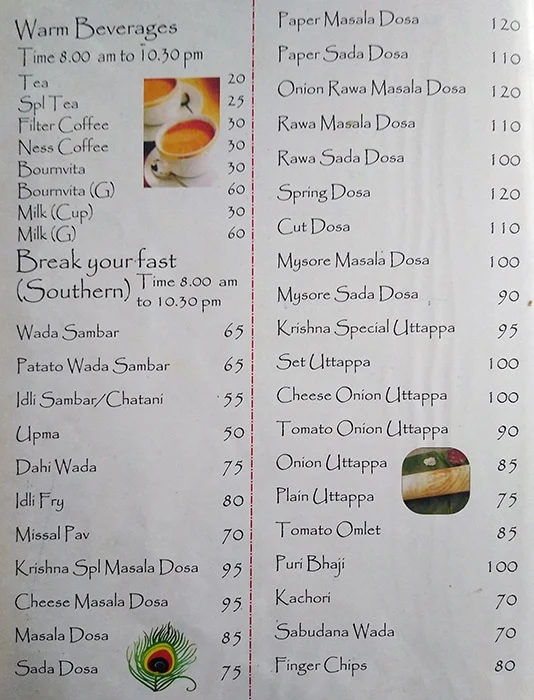 Warm Beverages
Time 8.00 am to 10.30 pm
Tea 20
Spl Tea 25
Filter Coffee 30
Ness Coffee 30
Bournvita 30
Bournvita (G) 60
Milk (Cup) 30
Milk (G) 60
Break your fast
(Southern) Time 8.00 am
to 10.30 pm
Wada Sambar 65
Patato Wada Sambar 65
Idli Sambar/Chatani 55
Upma 50
Dahi Wada 75
Idli Fry 80
Missal Pav 70
Krishna Spl Masala Dosa 95
Cheese Masala Dosa 95
Masala Dosa 85
Sada Dosa 75
Paper Masala Dosa 120
Paper Sada Dosa 110
Onion Rawa Masala Dosa 120
Rawa Masala Dosa 110
Rawa Sada Dosa 100
Spring Dosa 120
Cut Dosa 110
Mysore Masala Dosa 100
Mysore Sada Dosa 90
Krishna Special Uttappa 95
Set Uttappa 100
Cheese Onion Uttappa 100
Tomato Onion Uttappa 90
Onion Uttappa 85
Plain Uttappa 75
Tomato Omlet 85
Puri Bhaji 100
Kachori 70
Sabudana Wada 70
Finger Chips 80